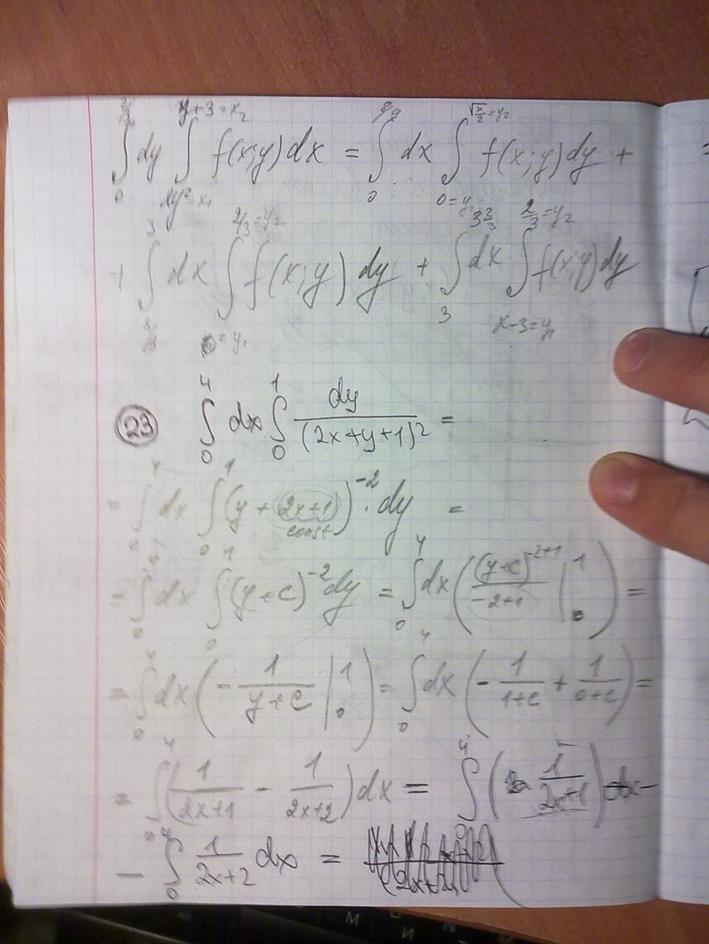 ∫₀ dy ∫_{2y²=x₁}^{y+3=x₂} f(x;y)dx = ∫₀ dx ∫_{0=y₁}^{√(x/2)=y₂} f(x;y)dy +
+ ∫³ dx ∫_{0=y₁}^{2/3=y₂} f(x;y)dy + ∫₃^{3 2/3} dx ∫_{x-3=y₁}^{2/3=y₂} f(x;y)dy
23 ∫₀⁴ dx ∫₀¹ dy/(2x+y+1)² =
= ∫₀⁴ dx ∫₀¹ (y + 2x+1)⁻² · dy =
const
= ∫₀⁴ dx ∫₀¹ (y+c)⁻² dy = ∫₀⁴ dx ((y+c)⁻²⁺¹/(-2+1) |₀¹) =
= ∫₀⁴ dx (- 1/(y+c) |₀¹) = ∫₀⁴ dx (- 1/(1+c) + 1/(0+c)) =
= ∫₀⁴ (1/(2x+1) - 1/(2x+2)) dx = ∫₀⁴ (1/(2x+1)) dx -
- ∫₀⁴ 1/(2x+2) dx =